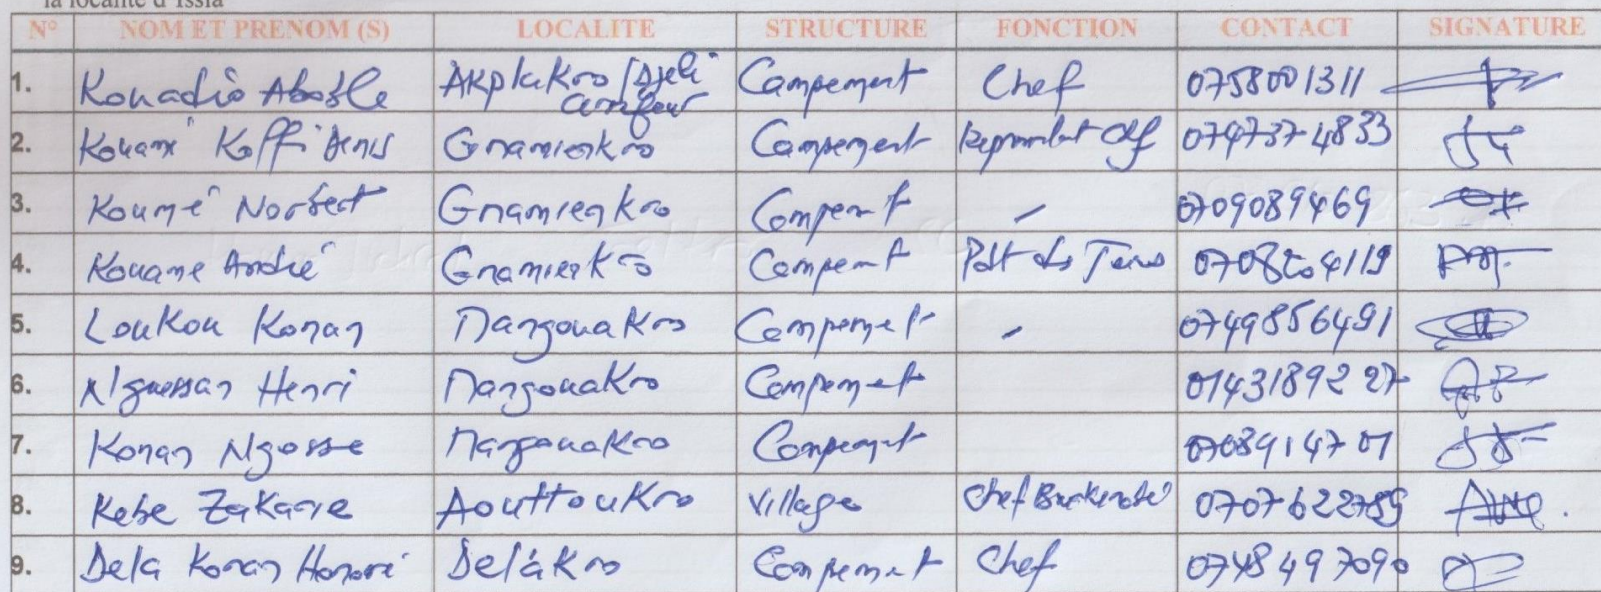 la localité d'Issia
N° NOM ET PRENOM (S) LOCALITE STRUCTURE FONCTION CONTACT SIGNATURE
1. Kouadio Abodle Akplakro / Djeli Campement Chef 0758001311
carrefour
2. Kouamé Koffi Denis Gnamienkro Campement Représentant Chef 0747374833
3. Koumé Norbert Gnamienkro Campemt - 0709089469
4. Kouame André Gnamienkro Campemt Pdt des Jeunes 0708204119
5. Loukou Konan Dangouakro Campement - 0749856491
6. N'guessan Henri Dangouakro Campement 0143189227
7. Konan Ngosse Dangouakro Campement 0708914701
8. Kebe Zakarie Aouttoukro Village Chef 0707622789
9. Dela Konan Honoré Delákro Campement Chef 0748497090